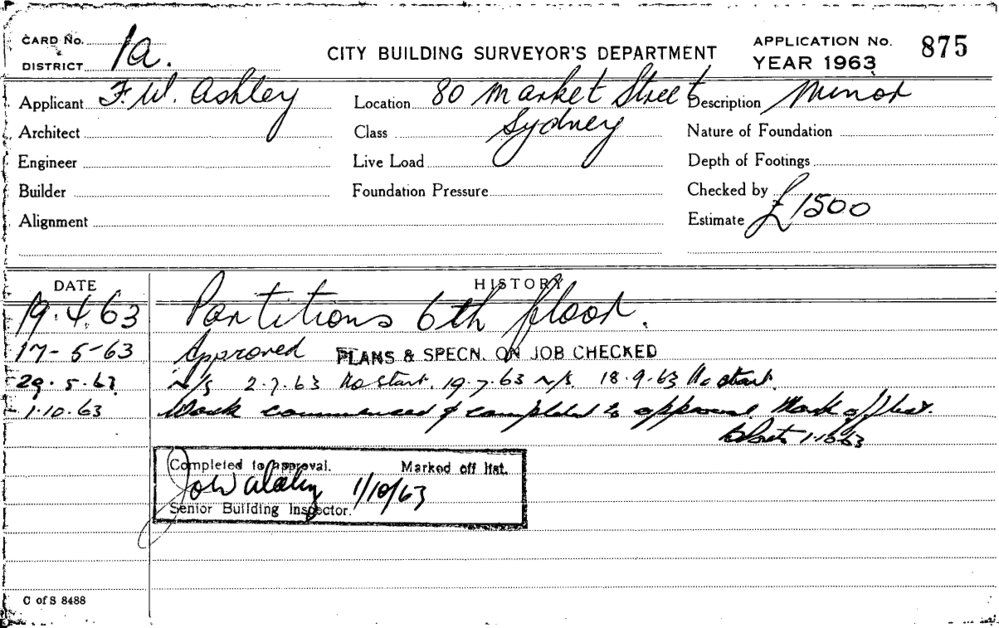 CARD No. CITY BUILDING SURVEYOR'S DEPARTMENT APPLICATION No. 875
DISTRICT 1a. YEAR 1963
Applicant F. W. Ashley Location 80 Market Street Description Minor
Architect Class Sydney Nature of Foundation
Engineer Live Load Depth of Footings
Builder Foundation Pressure Checked by
Alignment Estimate £1500
DATE HISTORY
19.4.63 Partitions 6th floor.
17-5-63 Approved PLANS & SPECN. ON JOB CHECKED
29.5.63 N/S 2.7.63 No start. 19.7.63 N/S. 18.9.63 No start.
1.10.63 Work commenced & completed to approval. Mark off list.
1.10.63
Completed to approval. Marked off list.
1/10/63
Senior Building Inspector.
C of S 8488